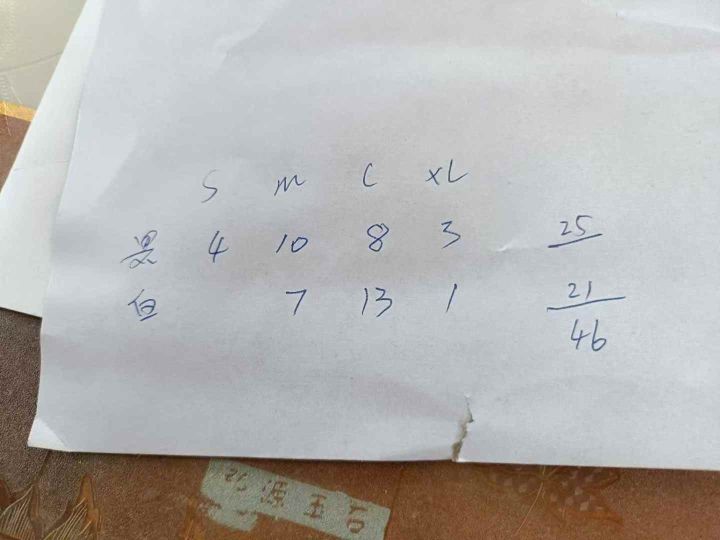 S M L XL
黑 4 10 8 3 25
白 7 13 1 21
46